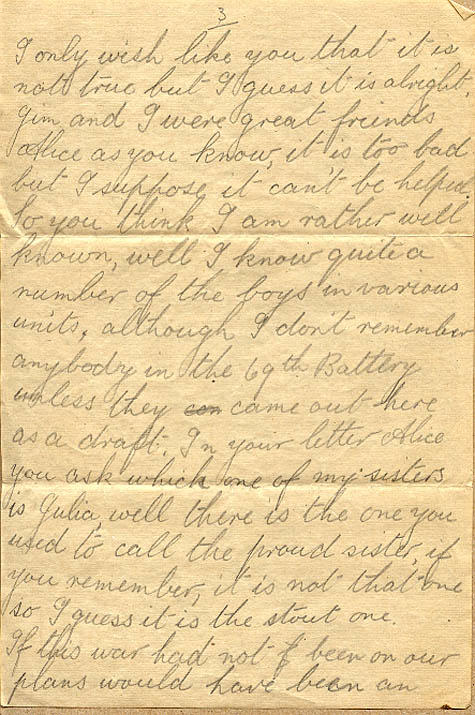 3
I only wish like you that it is
not true but I guess it is alright,
Jim and I were great friends
Alice as you know, it is too bad
but I suppose it can't be helped.
So you think I am rather well
known, well I know quite a
number of the boys in various
units, although I don't remember
anybody in the 69th Battery
unless they con came out here
as a draft. In your letter Alice
you ask which one of my sisters
is Julia, well there is the one you
used to call the proud sister, if
you remember, it is not that one
so I guess it is the stout one.
If this war had not been on our
plans would have been an